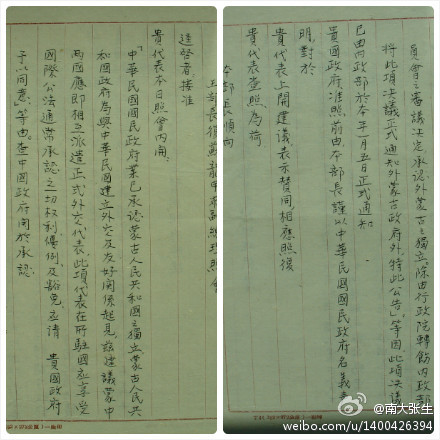 逕啓者接准
貴代表本日照會內開:
「中華民國國民政府業已承認蒙古人民共和國之獨立,蒙古人民共
和國政府為與中華民國建立外交及友好關係起見,茲建議蒙中
兩國應即相互派遣正式外交代表,此項代表在所駐國應享受
國際公法通常承認之一切權利優例及豁免,並請 貴國政府
予以同意」等由。查中國政府關於承認
員會之審議決定,承認外蒙古之獨立,除由行政院轉飭內政部
將此項決議正式通知外蒙古政府外,特此公告」,等因,此項決議
已由內政部於本年一月五日正式通知
貴國政府,准照前由,本部長謹以中華民國國民政府名義表
明,對於
貴代表上開建議表示贊同,相應照復
貴代表查照為荷
本部長順向
@南大张生
weibo.com/u/1400426394